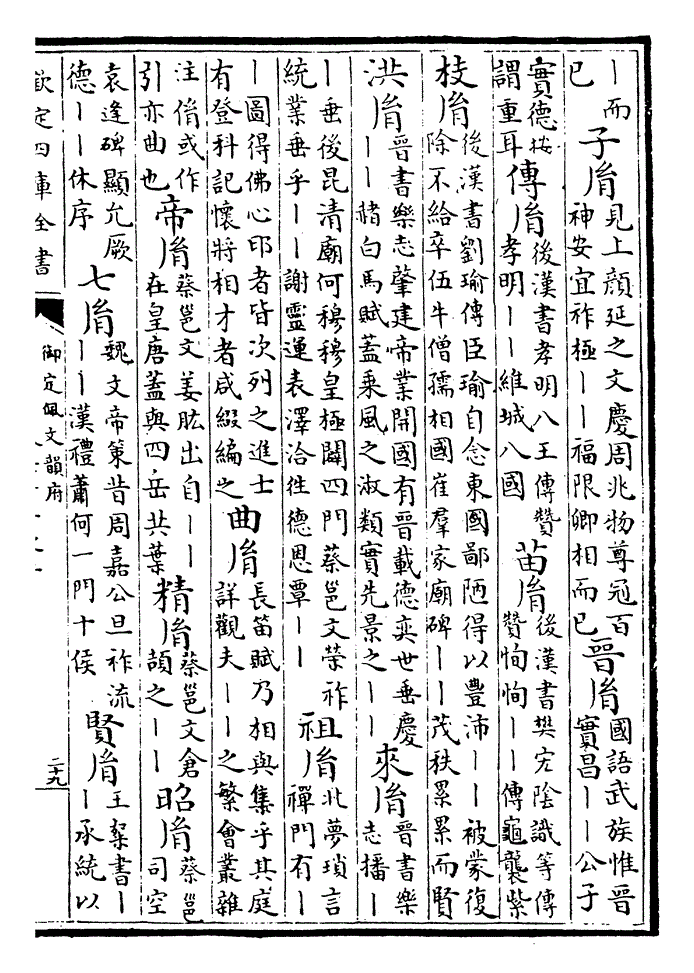 ｜而
已
子胤
見上顔延之文慶周兆物尊冠百
神安宜祚極｜｜福限卿相而已
晉胤
國語武族惟晉
實昌｜｜公子
實德按
謂重耳
傳胤
後漢書孝明八王傳贊
孝明｜｜維城八國
苗胤
後漢書樊宏陰識等傳
贊恂恂｜｜傳龜襲紫
枝胤
後漢書劉瑜傳臣瑜自念東國鄙陋得以豐沛｜｜被蒙復
除不給卒伍牛僧孺相國崔羣家廟碑｜｜茂秩累累而賢
洪胤
晉書樂志肇建帝業開國有晉載德奕世垂慶
｜｜赭白馬賦蓋乘風之淑類實先景之｜｜
來胤
晉書樂
志播｜
｜垂後昆清廟何穆穆皇極闢四門蔡邕文榮祚
統業垂乎｜｜謝靈運表澤洽往德恩覃｜｜
祖胤
北夢瑣言
禪門有｜
｜圖得佛心印者皆次列之進士
有登科記懷將相才者咸綴編之
曲胤
長笛賦乃相與集乎其庭
詳觀夫｜｜之繁會叢雜
注胤或作
引亦曲也
帝胤
蔡邕文姜肱出自｜｜
在皇唐蓋與四岳共葉
精胤
蔡邕文倉
頡之｜｜
昭胤
蔡邕
司空
袁逢碑顯允厥
德｜｜休序
七胤
魏文帝策昔周嘉公旦祚流
｜｜漢禮蕭何一門十侯
賢胤
王粲書｜
｜承統以
欽定四庫全書
御定佩文韻府
二十九